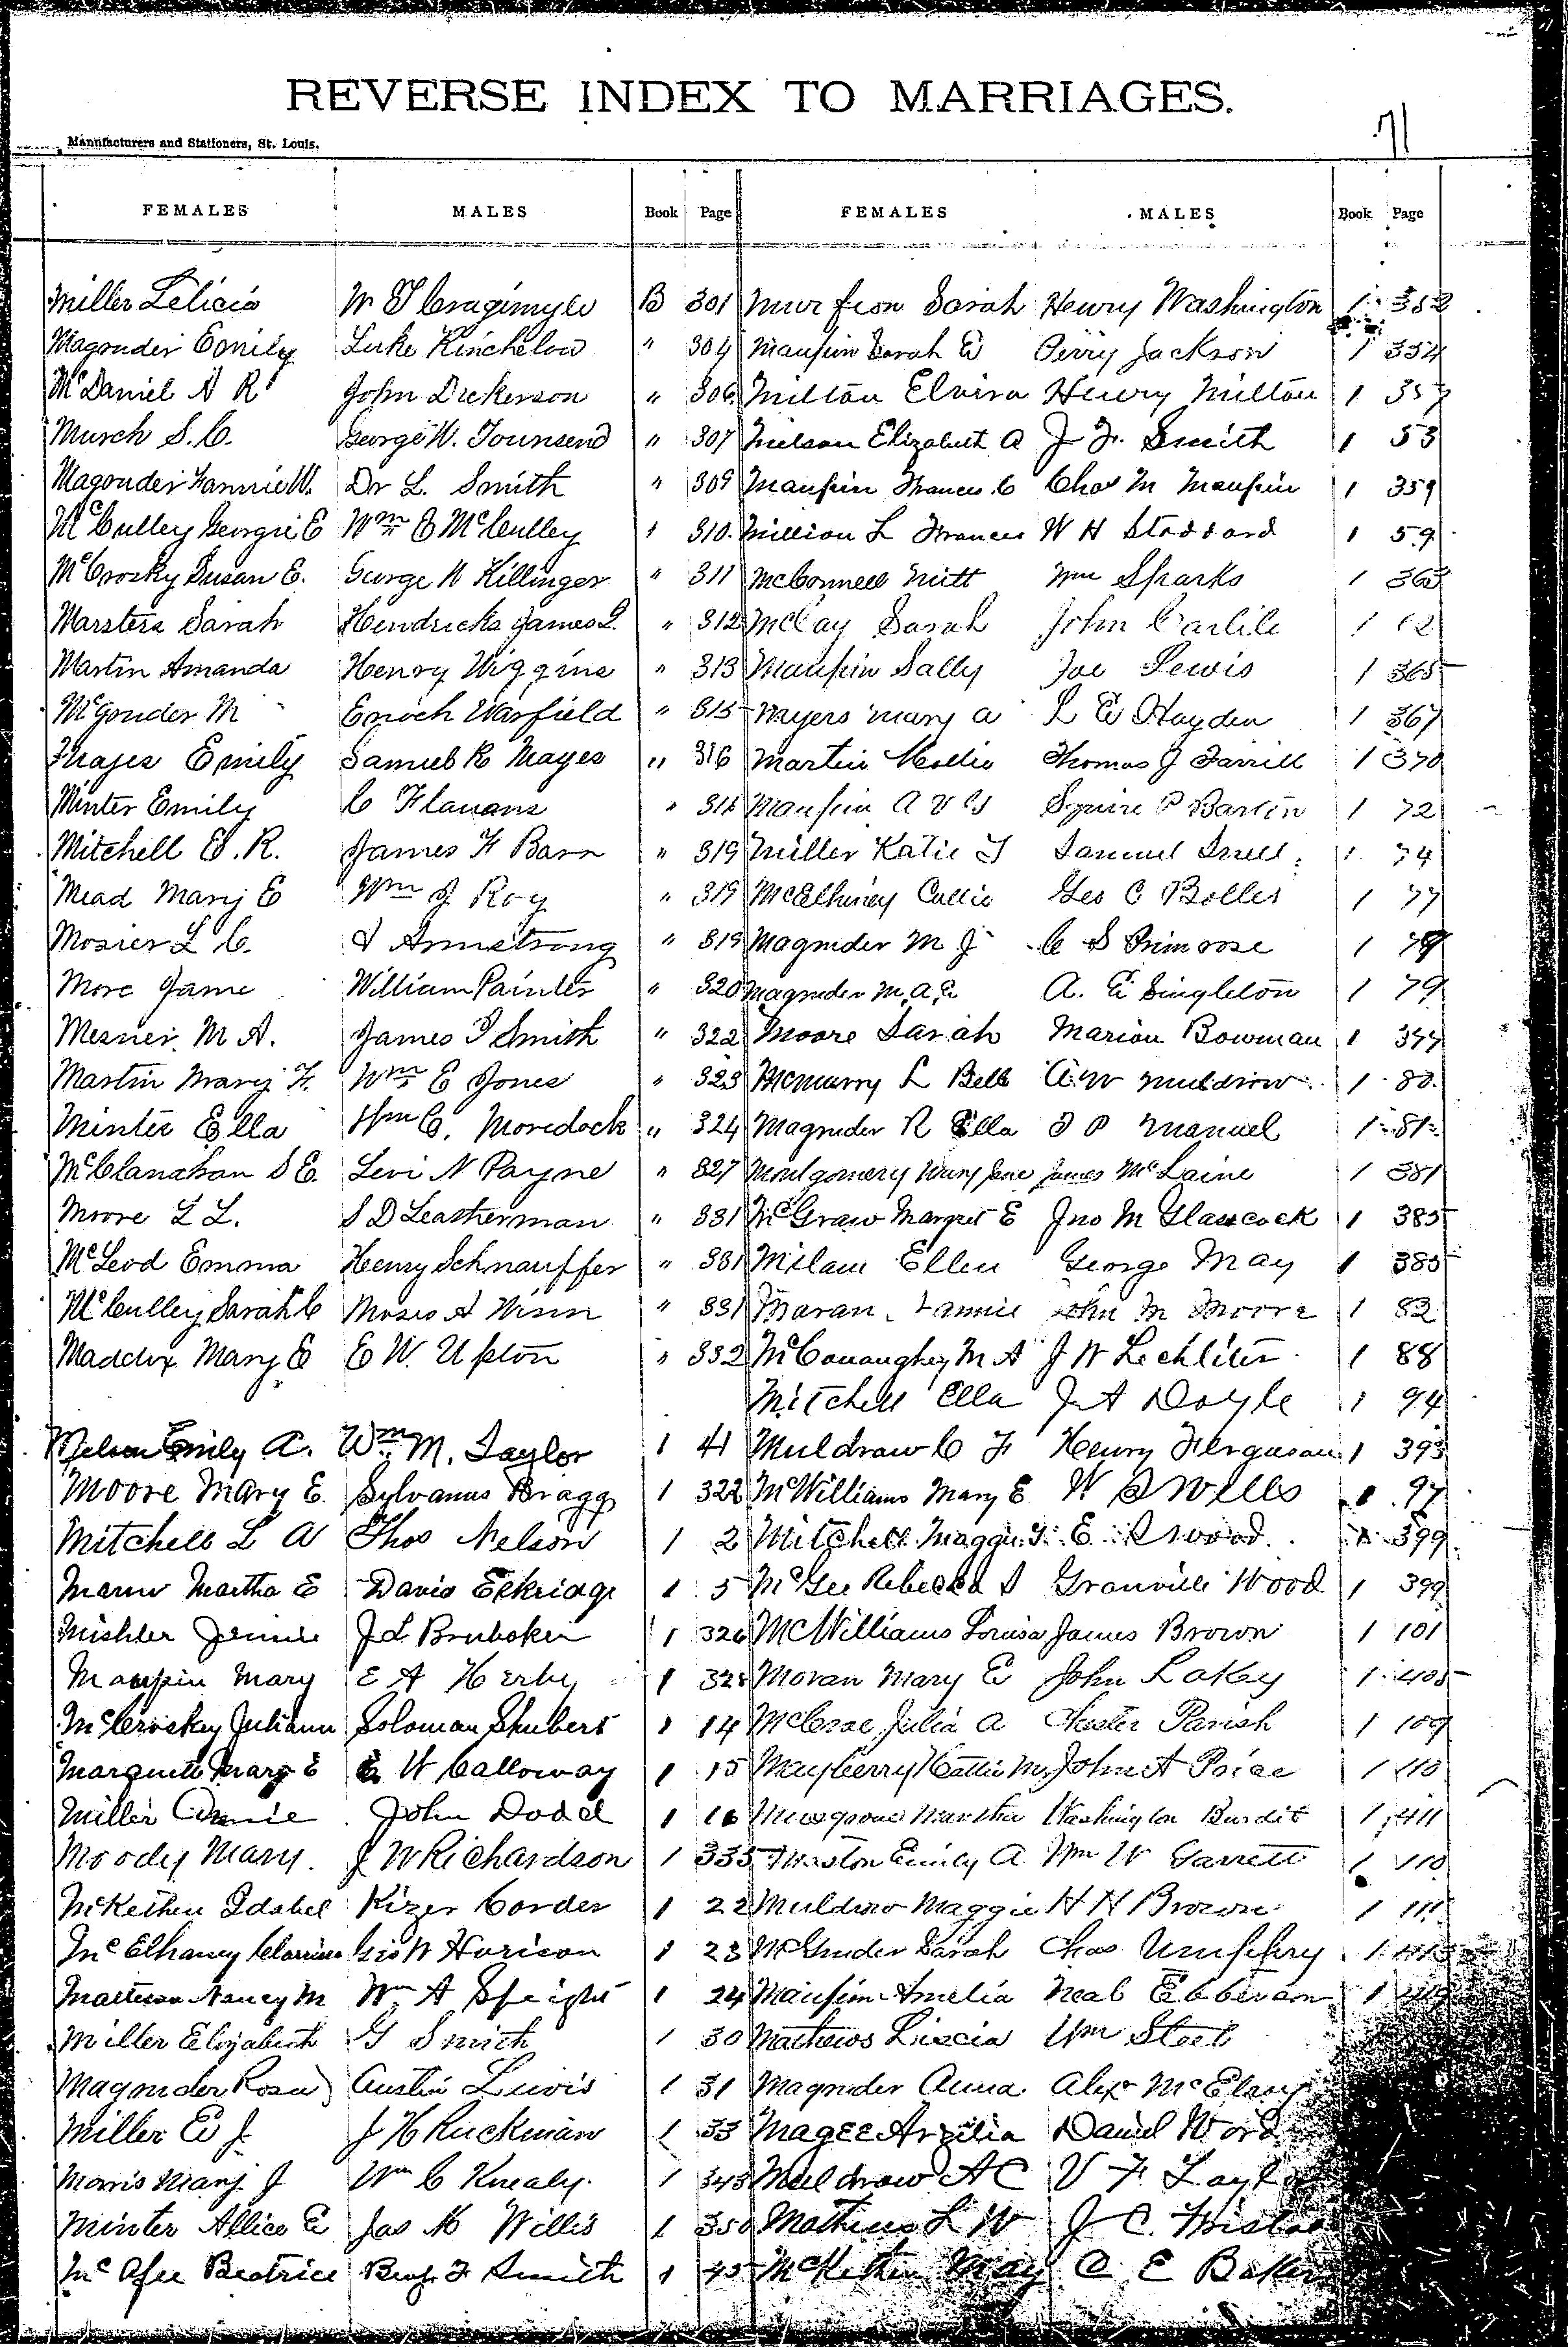 REVERSE INDEX TO MARRIAGES.
71
Manufacturers and Stationers, St. Louis.
FEMALES MALES Book Page FEMALES MALES Book Page
Miller Lelicia W B 301
Magruder Emily Luke Kinchelow " 304
McDaniel A R John Dickerson " 306
Murch S. C. George W. Townsend " 307
Magruder Fannie W. Dr L. Smith " 309
McCulley Georgie E Wm E McCulley " 310
McCrosky Susan E. George W Killinger " 311
Marsters Sarah Hendricks James L. " 312
Martin Amanda Henry Wiggins " 313
McGruder M Enoch Warfield " 315
Mayes Emily Samuel R Mayes " 316
Minter Emily C Flanans "
Mitchell E. R. James F Barr " 319
Mead Mary E Wm J Roy " 319
Mosier L C. Armstrong " 319
More Jame William Painter " 320
Mesner M A. James Smith " 322
Martin Mary F. Wm E Jones " 323
Minter Ella Wm C. Moredock " 324
McClanahan S E. Levi N Payne " 327
Moore L L. S D Leatherman " 331
McLeod Emma Henry Schnauffer " 331
McCulley Sarah C Moses A Winn " 331
Maddox Mary E E W. Upton " 332
Emily A. Wm M. Taylor 1 41
Moore Mary E. Sylvanus Bragg 1 322
Mitchell L A Thos Nelson 1 2
Martha E David Eskridge 1 5
Mishler Jennie J L Brubaker 1 326
Maupin Mary E A Kerby 1
McCroskey Juliann Soloman Shubert 1 14
Marquett Mary E W Calloway 1 15
Miller Annie John Dodd 1 16
Moody Mary. J W Richardson 1 335
McKethen Idabel Kizer Corder 1 22
McElhaney Geo W Harison 1 23
Nancy M Wm A Speight 1 24
Miller Elizabeth G Smith 1 30
Magruder Rosa Austin Lewis 1 31
Miller E J. J H Ruckman 1 33
Morris Mary J Wm C Knealy. 1 343
Minter Allice E Jas M Willis 1 350
McAfee Beatrice Benj. F Smith 1 45
Sarah Henry Washington 1 352
Maupin Sarah E Perry Jackson 1 354
Milton Elvira Henry Milton 1
Elizabeth A J. F. Smith 1 53
Maupin Frances C Chas M Maupin 1 359
Million L Frances W H Stoddard 1 59
McConnell Mitt Wm Sparks 1 363
McCay Sarah John Carlile 1
Maupin Sally Joe Lewis 1 365
Myers Mary A L E Hayden 1 367
Martin Mollie Thomas J Farrell 1 370
Maupin A V Squire P Bartin 1 72
Miller Katie Samuel Snell 1 74
McElhiney Callie Geo C Bolles 1 77
Magruder M J C S Primrose 1
Magruder M. A. E. A. E Singleton 1 79
Moore Sarah Marion Bowman 1 377
McMurry L Bell A. W Muldrow 1 80
Magruder R Ella Manuel 1 81
Montgomery Mary Jane James McLaine 1 381
McGraw Margret E Jno M Glascock 1 385
Milam Ellen George May 1 385
Maran Fannie John M Moore 1 82
McConaughey M A J W Lechliter 1 88
Mitchell Ella J A Doyle 1 94
Muldraw C F Henry Ferguson 1 393
McWilliams Mary E W Wells 97
Mitchell Maggie E Wood 399
McGee Rebecca Granville Wood 1 399
McWilliams Louisa James Brown 1 101
Moran Mary E John Lakey 1 405
McCrae Julia A Chester Parish 1 109
Mayberry Hattie M John A Price 1 110
Musgrove Martha Washington Burdit 1 411
Emily A Wm W Garrett 1 110
Muldrow Maggie H H Brown 1 111
McGruder Sarah Chas Umphfry 1
Maupin Amelia Neal 1
Mathews Wm
Magruder Anna Alex
Magee Arzilia Daniel Word
Muldrow A C V F
L W J C.
McKethen May C E Baker